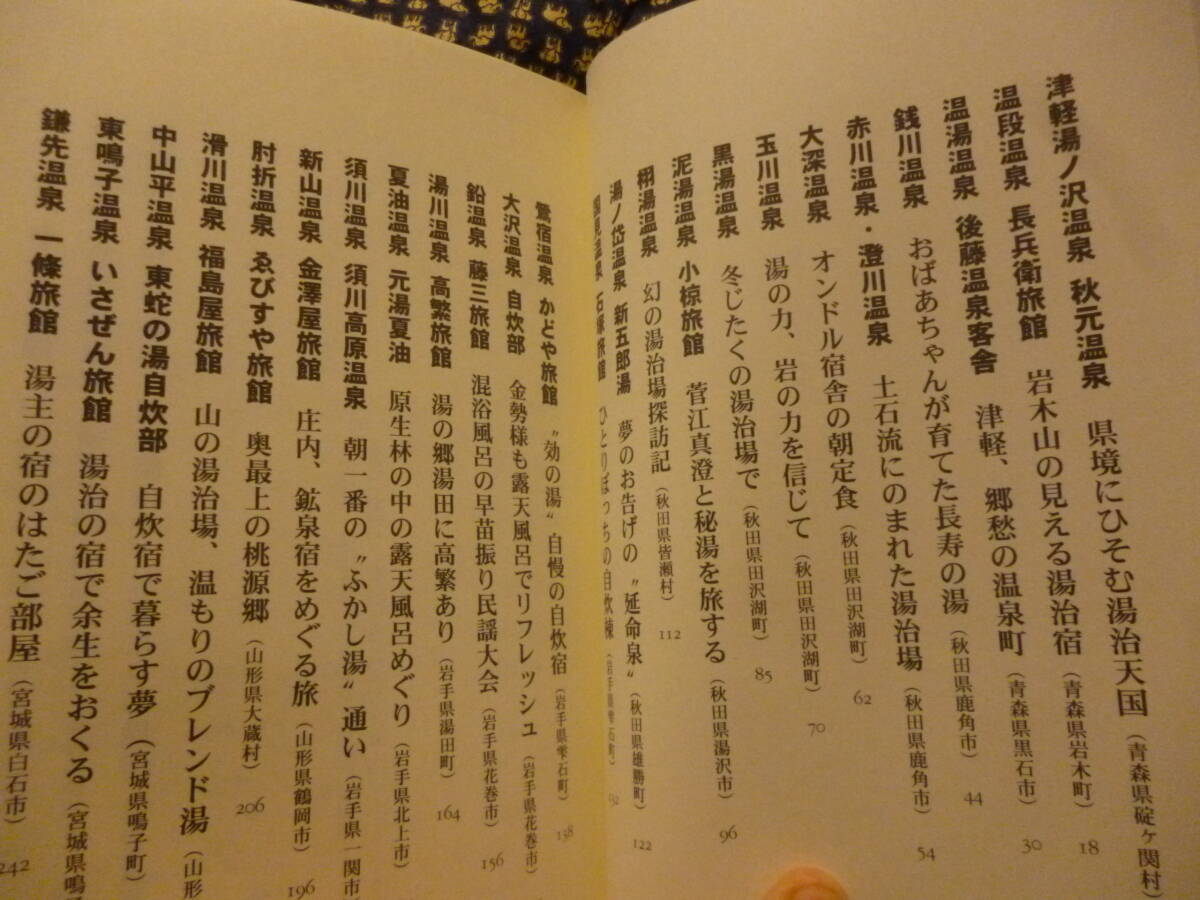 津軽湯ノ沢温泉 秋元温泉 県境にひそむ湯治天国 (青森県碇ヶ関村)
温段温泉 長兵衛旅館 岩木山の見える湯治宿 (青森県岩木町) 18
温湯温泉 後藤温泉客舎 津軽、郷愁の温泉町 (青森県黒石市) 30
銭川温泉 おばあちゃんが育てた長寿の湯 (秋田県鹿角市) 44
赤川温泉・澄川温泉 土石流にのまれた湯治場 (秋田県鹿角市) 54
大深温泉 オンドル宿舎の朝定食 (秋田県田沢湖町) 62
玉川温泉 湯の力、岩の力を信じて (秋田県田沢湖町) 70
黒湯温泉 冬じたくの湯治場で (秋田県田沢湖町) 85
泥湯温泉 小椋旅館 菅江真澄と秘湯を旅する (秋田県湯沢市) 96
栩湯温泉 幻の湯治場探訪記 (秋田県皆瀬村) 112
湯ノ岱温泉 新五郎湯 夢のお告げの〝延命泉〟 (秋田県雄勝町) 122
国見温泉 石塚旅館 ひとりぼっちの自炊棟 (岩手県雫石町) 132
鶯宿温泉 かどや旅館 〝効の湯〟自慢の自炊宿 (岩手県雫石町) 138
大沢温泉 自炊部 金勢様も露天風呂でリフレッシュ (岩手県花巻市)
鉛温泉 藤三旅館 混浴風呂の早苗振り民謡大会 (岩手県花巻市) 156
湯川温泉 高繁旅館 湯の郷湯田に高繁あり (岩手県湯田町) 164
夏油温泉 元湯夏油 原生林の中の露天風呂めぐり (岩手県北上市)
須川温泉 須川高原温泉 朝一番の〝ふかし湯〟通い (岩手県一関市)
新山温泉 金澤屋旅館 庄内、鉱泉宿をめぐる旅 (山形県鶴岡市) 196
肘折温泉 ゑびすや旅館 奥最上の桃源郷 (山形県大蔵村) 206
滑川温泉 福島屋旅館 山の湯治場、温もりのブレンド湯 (山形
中山平温泉 東蛇の湯自炊部 自炊宿で暮らす夢 (宮城県鳴子町)
東鳴子温泉 いさぜん旅館 湯治の宿で余生をおくる (宮城県鳴
鎌先温泉 一條旅館 湯主の宿のはたご部屋 (宮城県白石市) 242